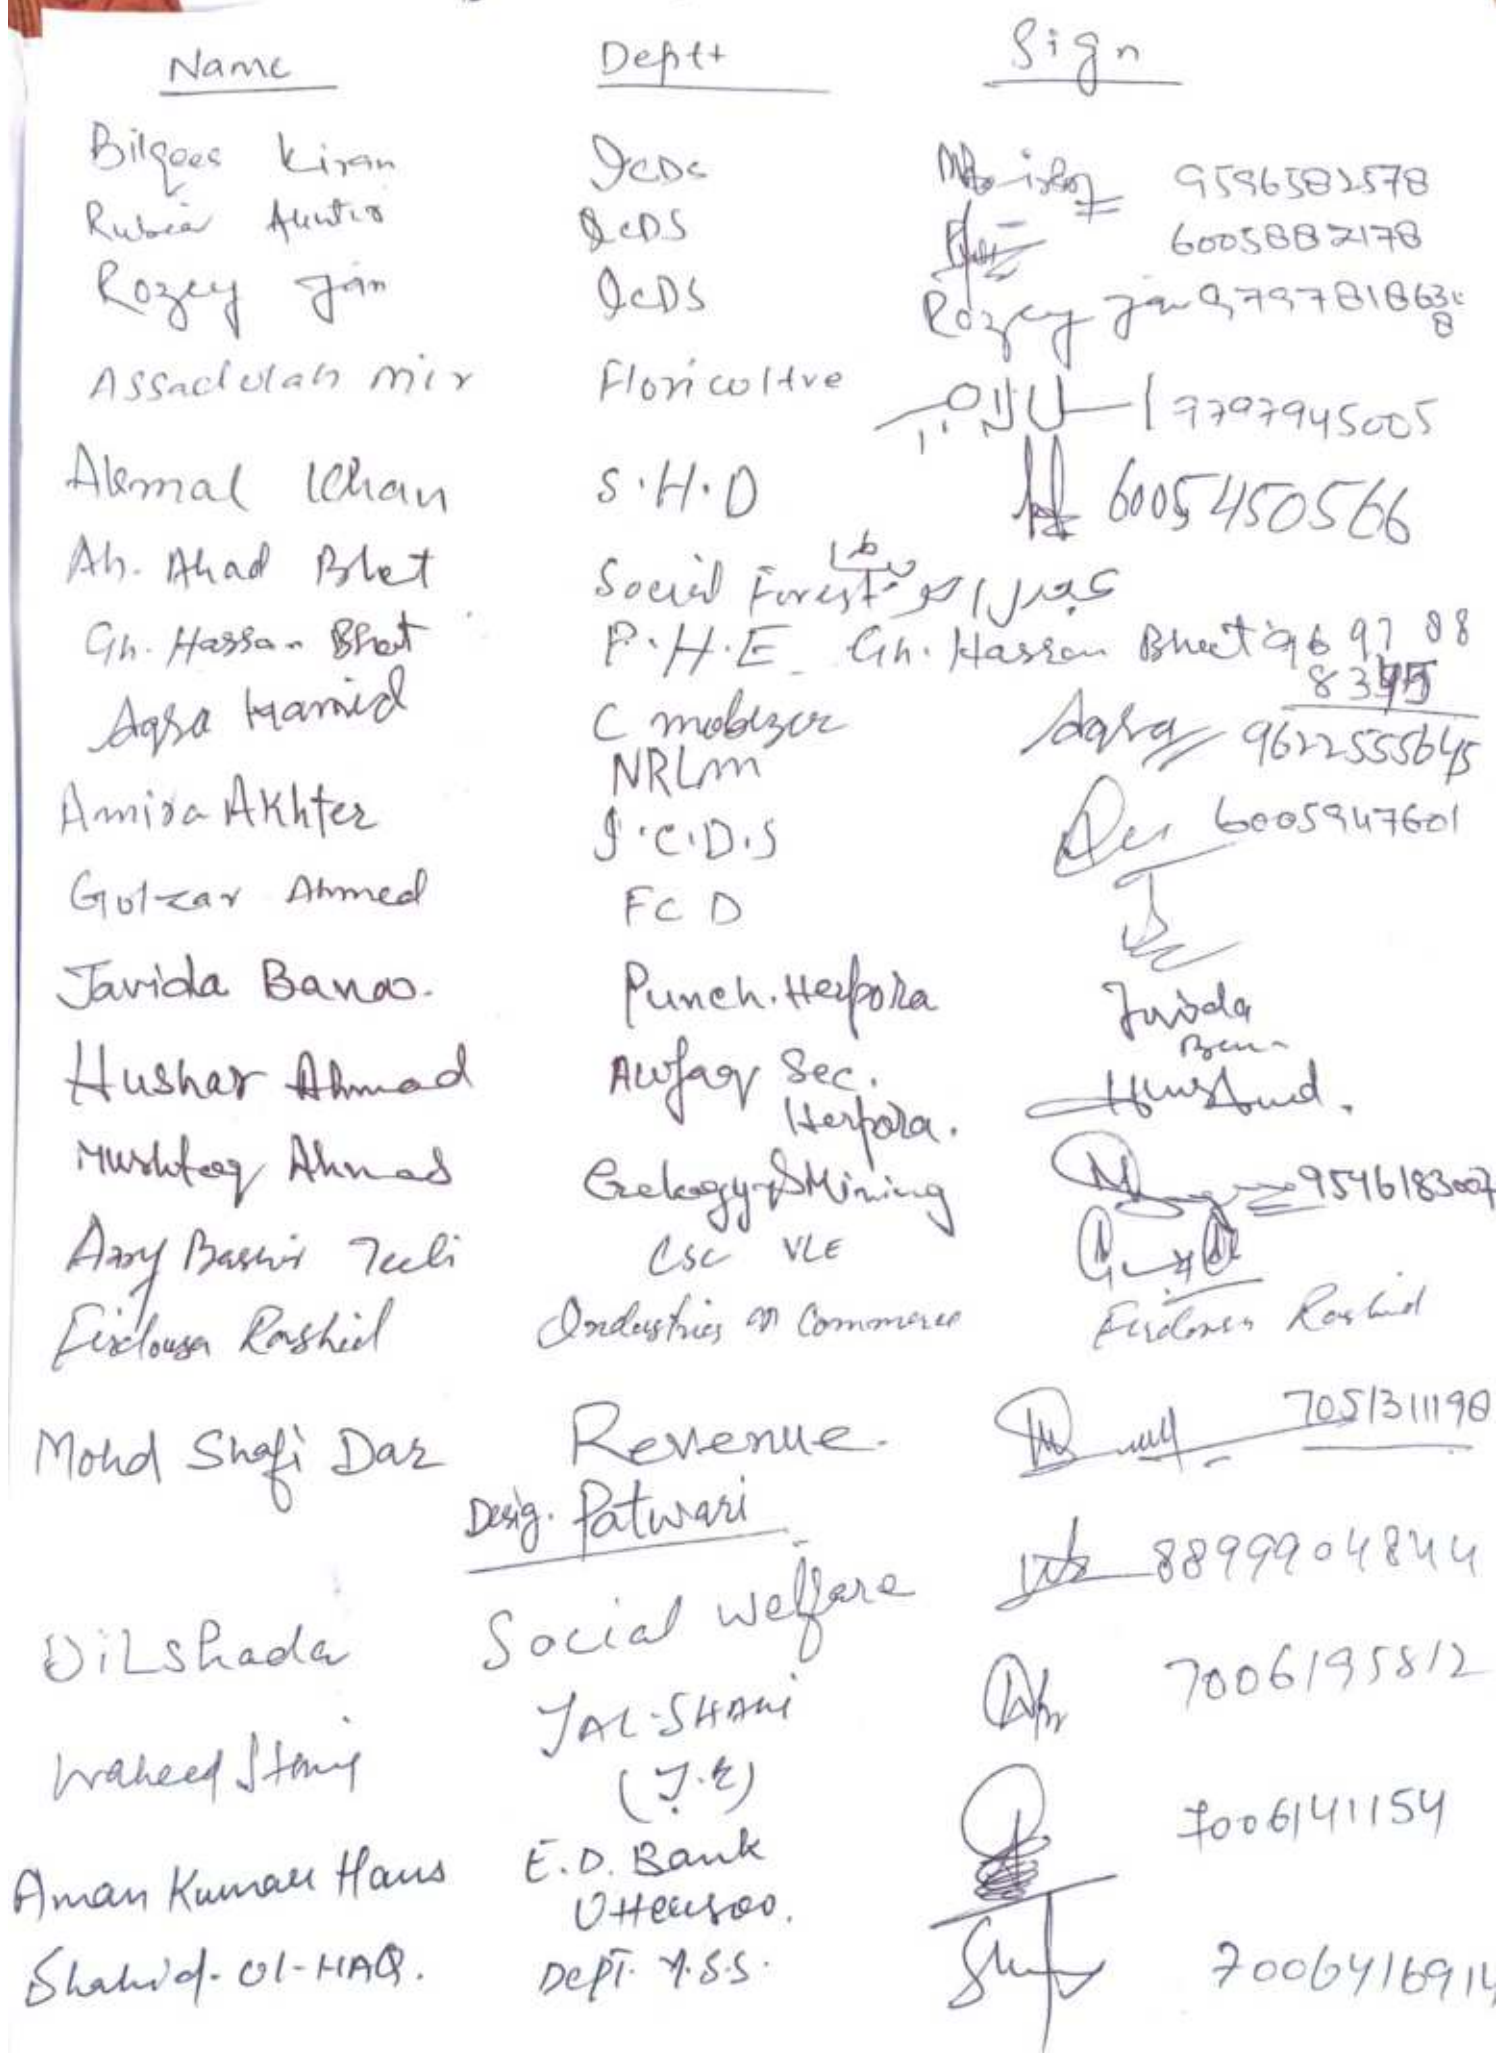 Name Deptt Sign
Bilqees Kiran ICDS 9596582578
Rubia Akhter ICDS 6005882178
Rozey Jan ICDS Rozey Jan 979781863
8
Assadulah mir Floricoltve 9797945005
Akmal Khan S.H.D 6005450566
Ah. Ahad Bhat Social Forest عبدل احد بٹ
Gh. Hassan Bhat P.H.E Gh. Hassan Bhat 969788
Aqsa Hamid C mobizer Aqsa 9622555645
NRLM
Amira Akhter I.C.D.S 6005947601
Gulzar Ahmed FC D
Javida Banoo. Punch. Herpora Javida
Hushar Ahmad Awfaq Sec.
Herpora.
Mushtaq Ahmad Geology & Mining 9546183007
Bashir Teeli CSC VLE
Firdousa Rashid Industries Commerce Firdousa Rashid
Mohd Shafi Dar Revenue. 7051311190
Desig. Patwari
Dilshada Social welfare 8899904844
Waheed JAL-SHAKTI 7006195812
(J.E)
Aman Kumar Hans E.D. Bank 7006141154
Shahid-Ul-HAQ. DEPT. Y.S.S. 7006416914